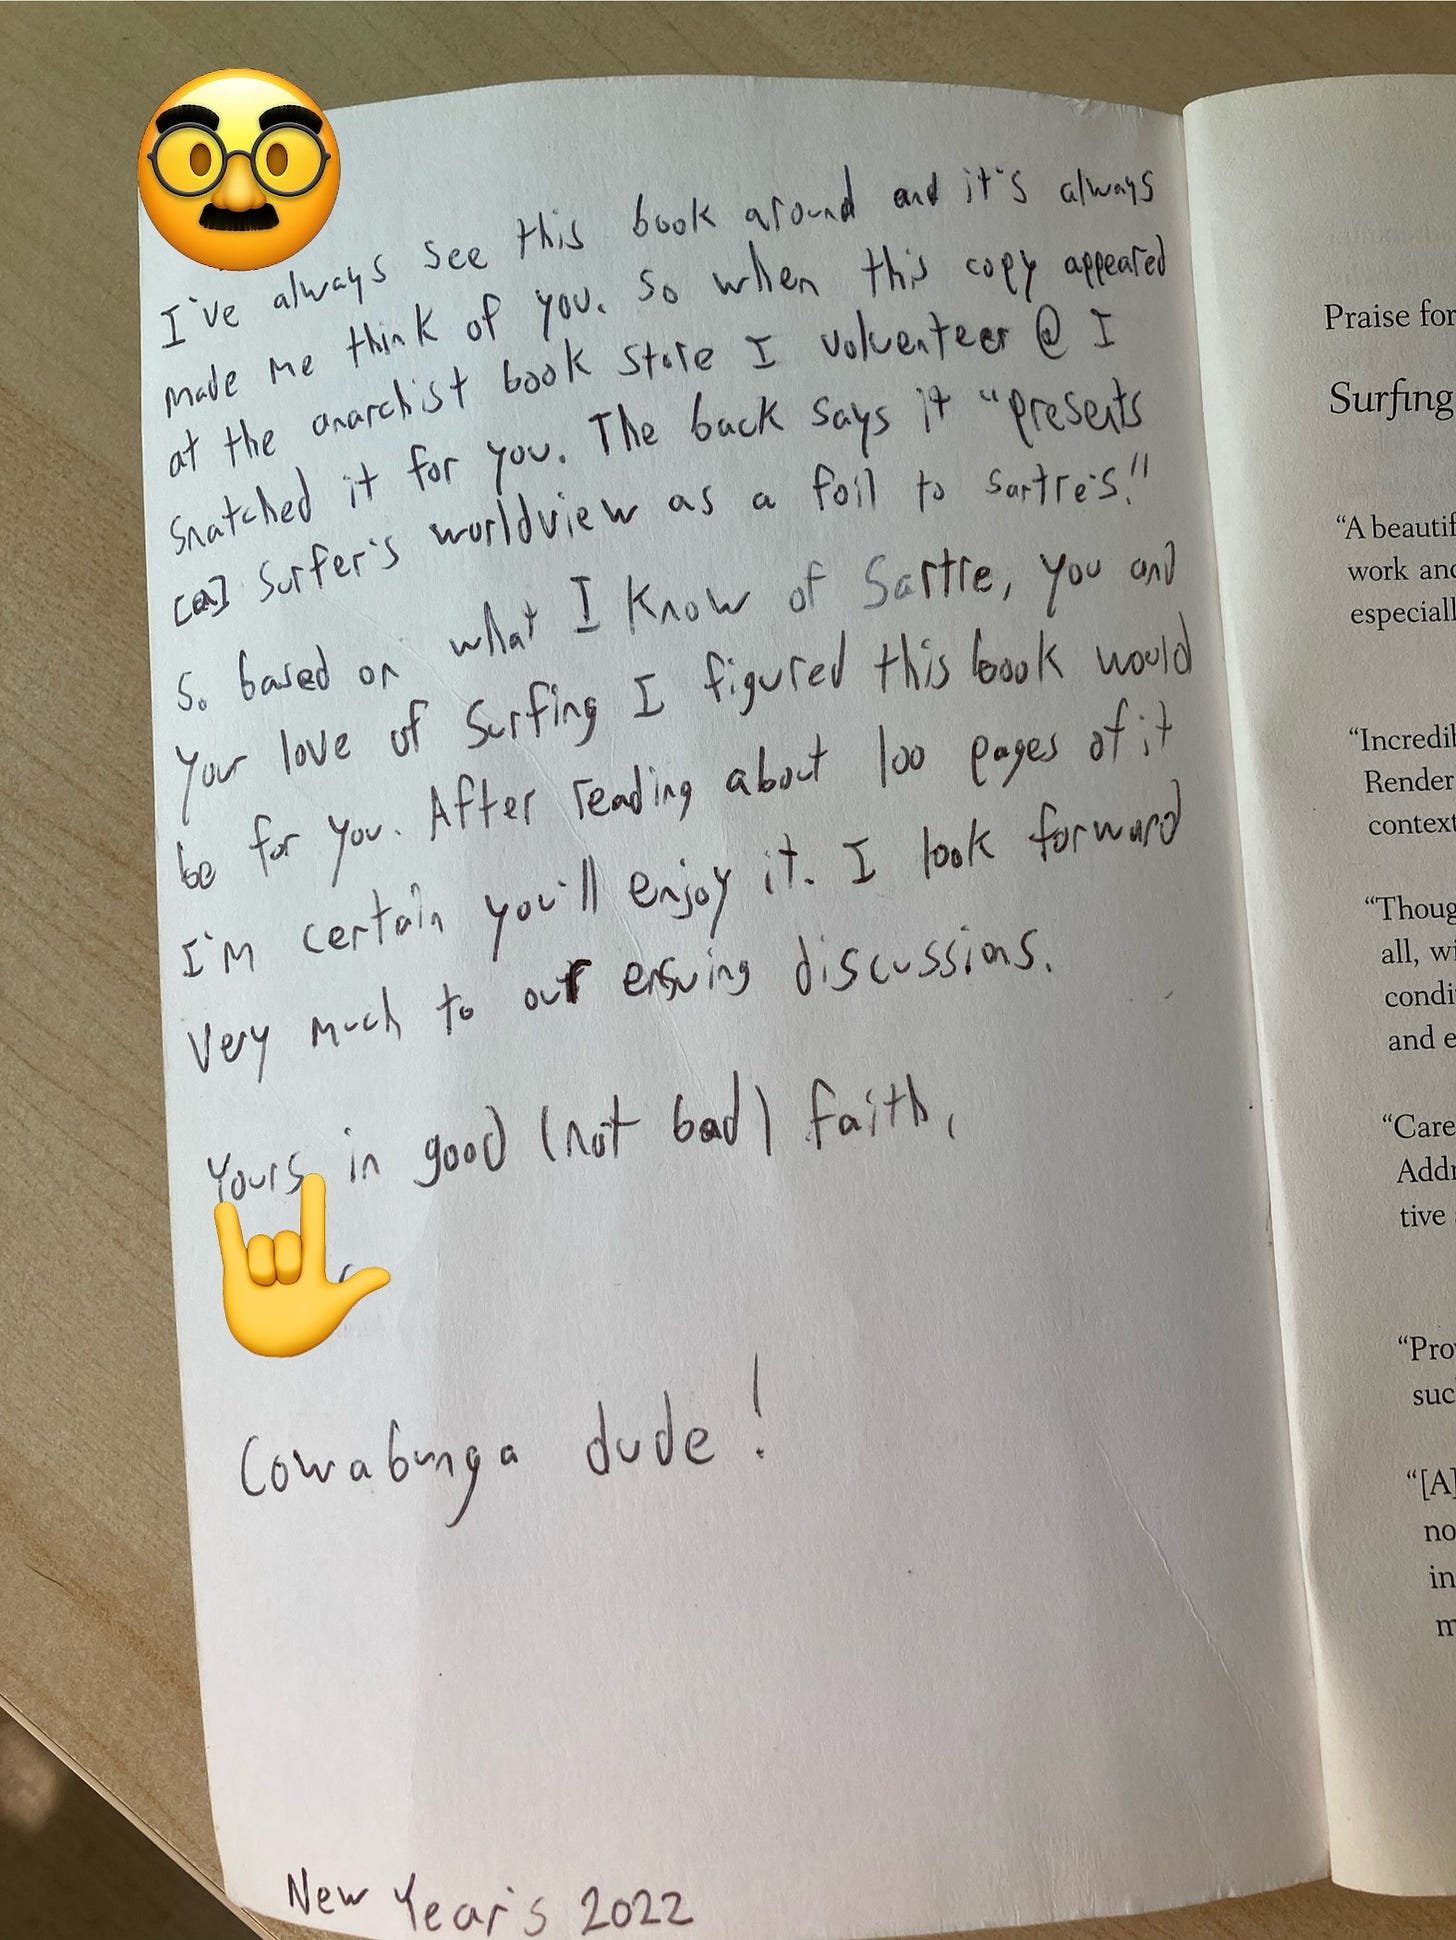 I've always see this book around and it's always
made me think of you. So when this copy appeared
at the anarchist book store I volunteer @ I
snatched it for you. The back says it "presents
[a] surfer's worldview as a foil to Sartre's."
So based on what I know of Sartre, you and
your love of surfing I figured this book would
be for you. After reading about 100 pages of it
I'm certain you'll enjoy it. I look forward
very much to our ensuing discussions.
Yours in good (not bad) faith,
Cowabunga dude!
New Year's 2022
Praise for
Surfing
"A beautif
work and
especiall
"Incredib
Render
context
"Thoug
all, wi
condi
and e
"Care
Addr
tive
"Pro
suc
"[A]
no
in
m